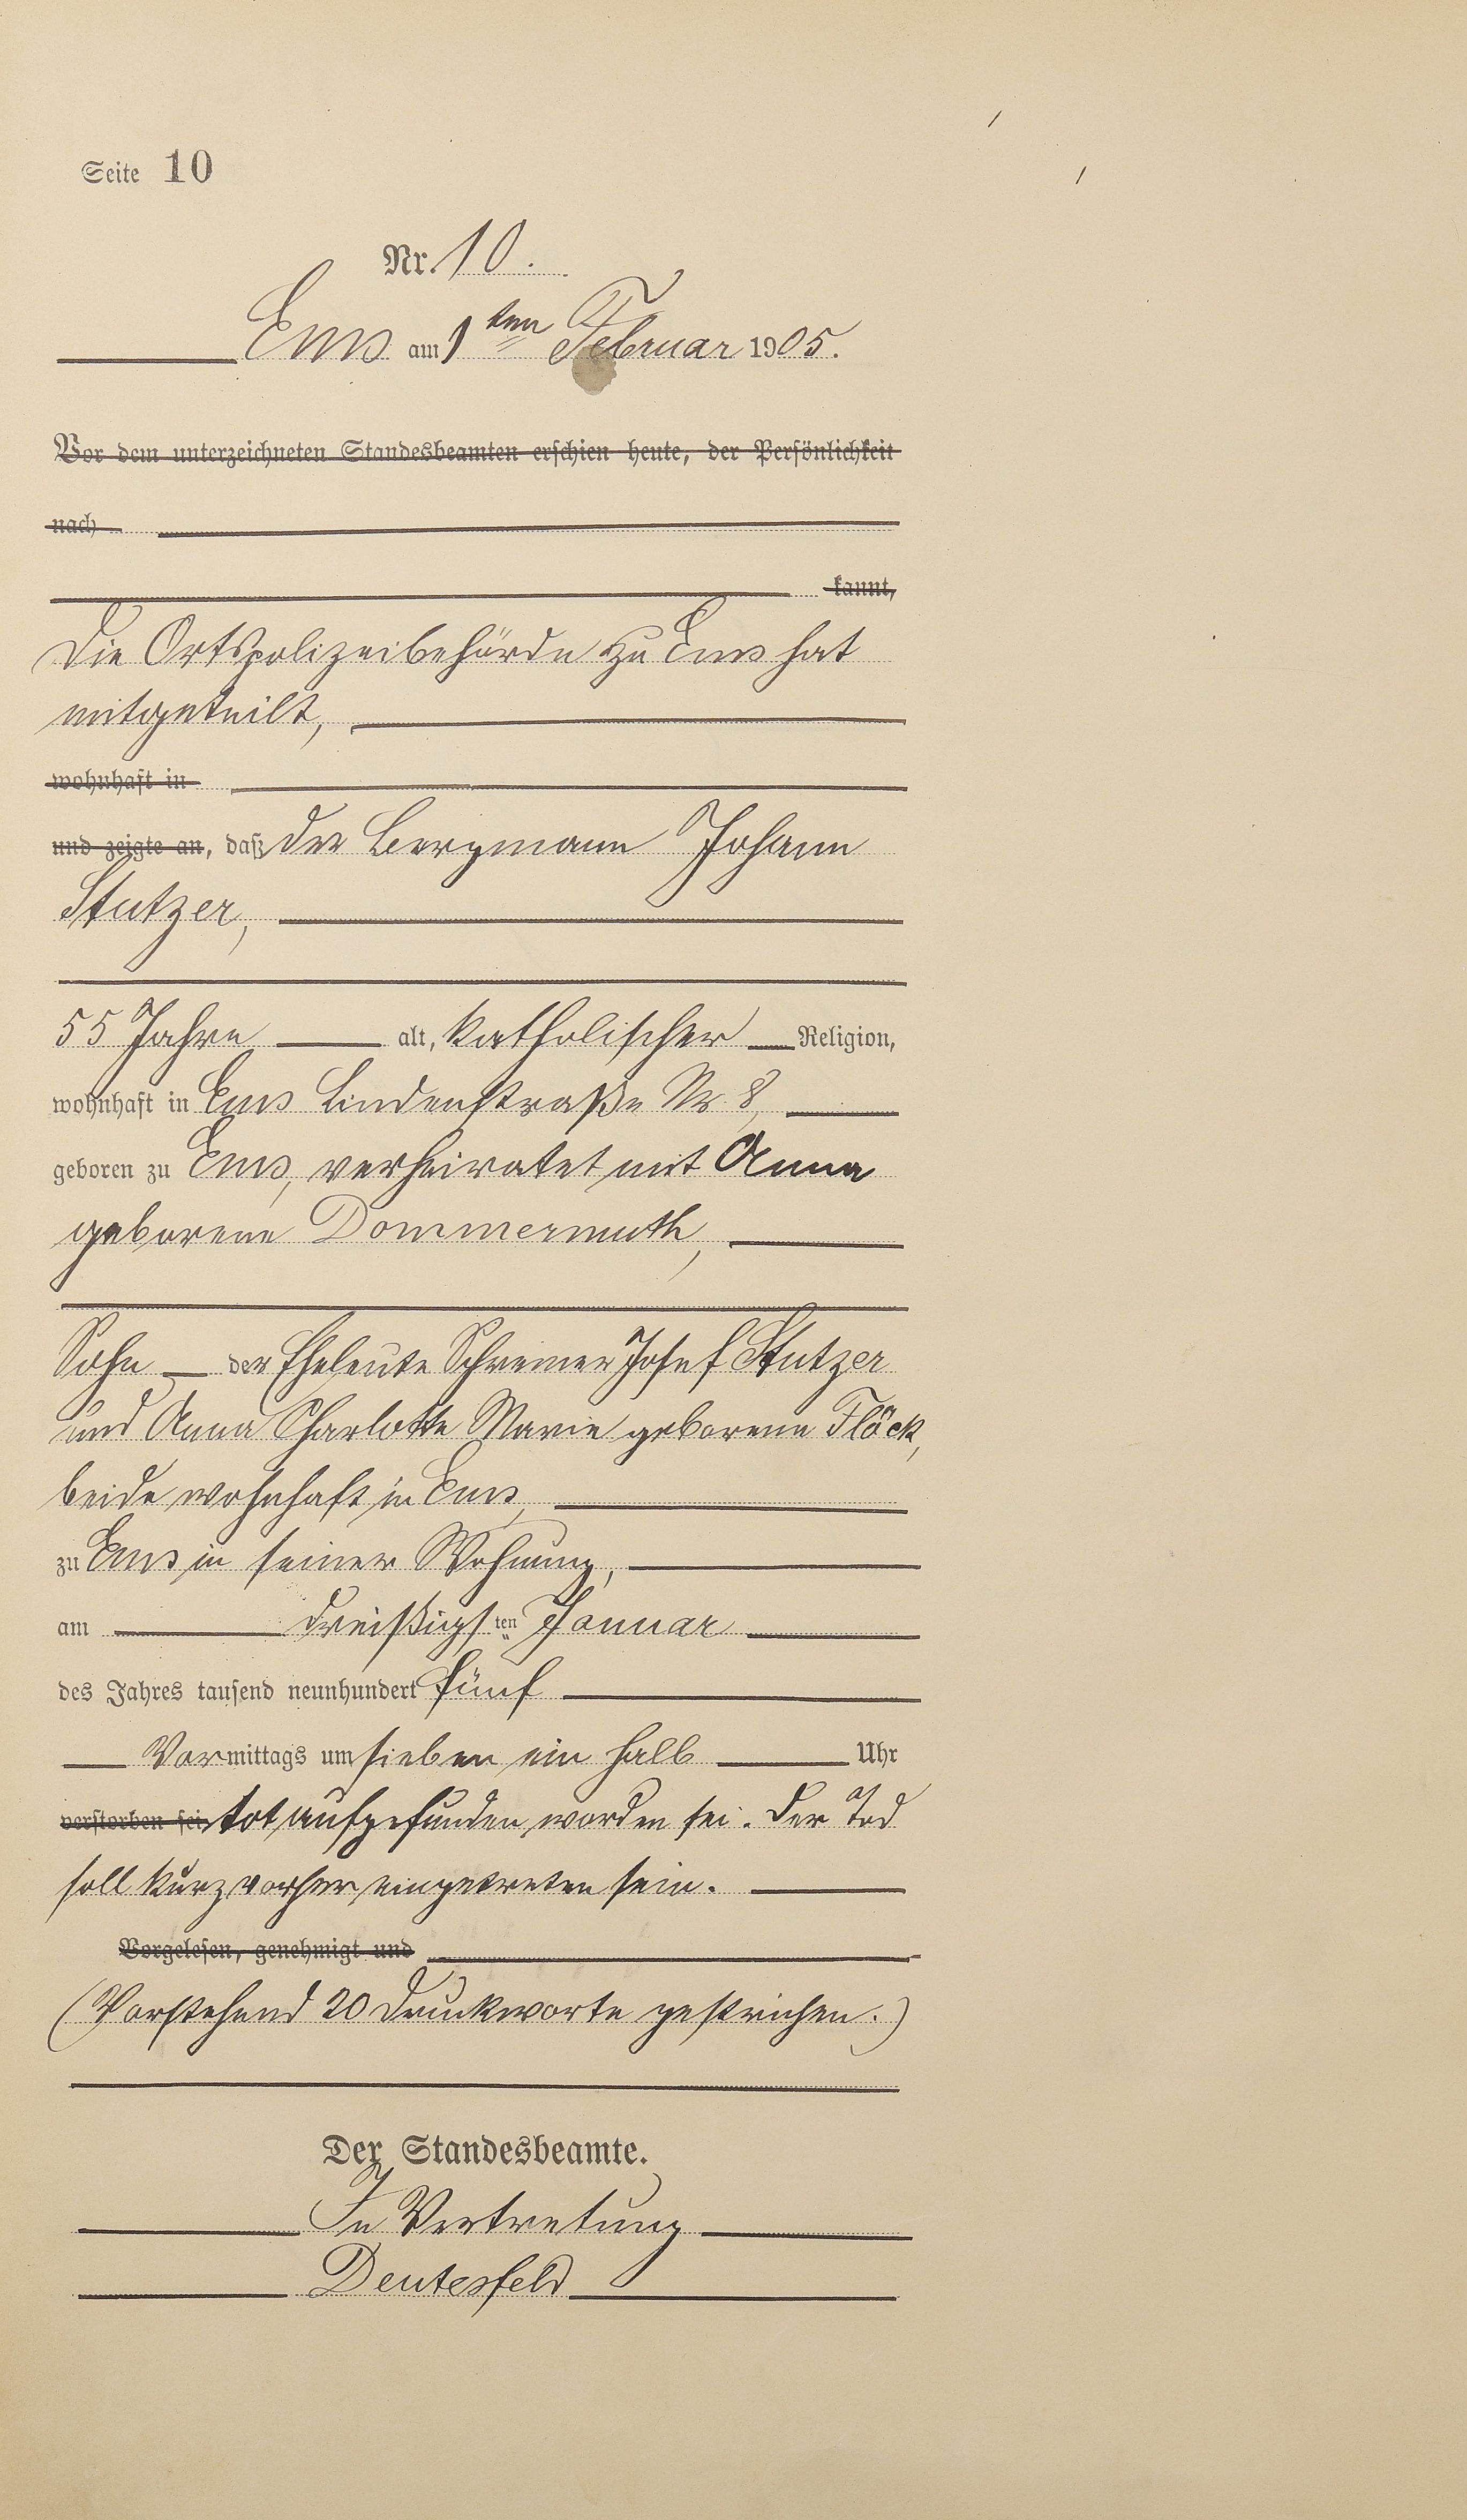 Seite 10
Nr. 10.
Ems am 1ten Februar 1905.
Vor dem unterzeichneten Standesbeamten erschien heute, der Persönlichkeit
nach
kannt,
Die Ortspolizeibehörde zu Ems hat
mitgeteilt,
wohnhaft in
und zeigte an, daß der Bergmann Johann
Stutzer,
55 Jahre alt, katholischer Religion,
wohnhaft in Ems Lindenstraße Nr. 8,
geboren zu Ems, verheiratet mit Anna
geborene Dommermuth,
Sohn der Eheleute Schreiner Josef Stutzer
und Anna Charlotte Marie geborene Flöck,
beide wohnhaft in Ems,
zu Ems in seiner Wohnung,
am dreißigsten Januar
des Jahres tausend neunhundert fünf
Vormittags um sieben ein halb Uhr
verstorben sei tot aufgefunden worden sei. Der Tod
soll kurz vorher eingetreten sein.
Vorgelesen, genehmigt und
(Vorstehend 20 Druckworte gestrichen.)
Der Standesbeamte.
In Vertretung
Deutesfeld